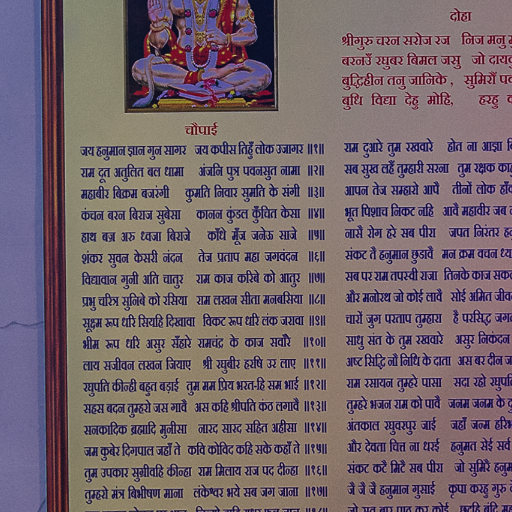 दोहा
श्रीगुरु चरन सरोज रज निज मनु
बरनउँ रघुबर बिमल जसु जो
बुद्धिहीन तनु जानिके, सुमिरौं
बुधि विद्या देहु मोहिं, हरहु
चौपाई
जय हनुमान ज्ञान गुन सागर जय कपीस तिहुँ लोक उजागर ॥१॥
राम दूत अतुलित बल धामा अंजनि पुत्र पवनसुत नामा ॥२॥
महाबीर बिक्रम बजरंगी कुमति निवार सुमति के संगी ॥३॥
कंचन बरन बिराज सुबेसा कानन कुंडल कुँचित केसा ॥४॥
हाथ बज्र अरु ध्वजा बिराजे काँधे मूँज जनेऊ साजे ॥५॥
शंकर सुवन केसरी नंदन तेज प्रताप महा जगवंदन ॥६॥
विद्यावान गुनी अति चातुर राम काज करिबे को आतुर ॥७॥
प्रभु चरित्र सुनिबे को रसिया राम लखन सीता मनबसिया ॥८॥
सूक्ष्म रूप धरि सियहि दिखावा विकट रूप धरि लंक जरावा ॥९॥
भीम रूप धरि असुर सँहारे रामचंद्र के काज सवाँरे ॥१०॥
लाय सजीवन लखन जियाए श्री रघुबीर हरषि उर लाए ॥११॥
रघुपति कीन्ही बहुत बड़ाई तुम मम प्रिय भरत-हि सम भाई ॥१२॥
सहस बदन तुम्हरो जस गावै अस कहि श्रीपति कंठ लगावै ॥१३॥
सनकादिक ब्रह्मादि मुनीसा नारद सारद सहित अहीसा ॥१४॥
जम कुबेर दिगपाल जहाँ ते कवि कोविद कहि सके कहाँ ते ॥१५॥
तुम उपकार सुग्रीवहि कीन्हा राम मिलाय राज पद दीन्हा ॥१६॥
तुम्हरो मंत्र बिभीषण माना लंकेश्वर भये सब जग जाना ॥१७॥
राम दुआरे तुम रखवारे होत ना आज्ञा
सब सुख लहैं तुम्हारी सरना तुम रक्षक
आपन तेज सम्हारो आपै तीनों लोक
भूत पिशाच निकट नहि आवै महावीर जब
नासै रोग हरे सब पीरा जपत निरंतर
संकट तै हनुमान छुडावै मन क्रम वचन
सब पर राम तपस्वी राजा तिनके काज
और मनोरथ जो कोई लावै सोई अमित
चारों जुग परताप तुम्हारा है परसिद्ध
साधु संत के तुम रखवारे असुर निकंदन
अष्ट सिद्धि नौ निधि के दाता अस बर दीन
राम रसायन तुम्हरे पासा सदा रहो
तुम्हरे भजन राम को पावै जनम जनम के
अंतकाल रघुवरपुर जाई जहाँ जन्म
और देवता चित्त ना धरई हनुमत सेई सर्व
संकट कटै मिटै सब पीरा जो सुमिरै
जै जै जै हनुमान गुसाईं कृपा करहु गुरु